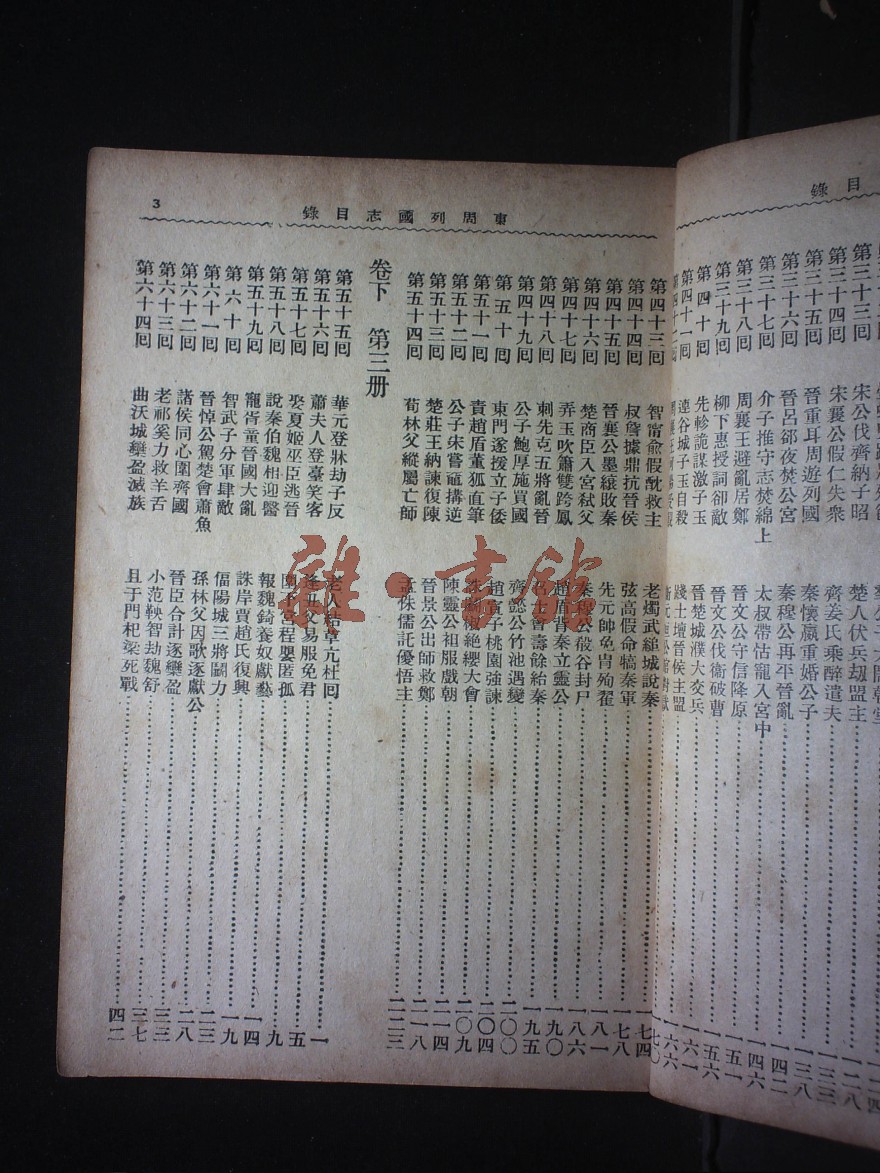 目錄
第三十三囘 宋公伐齊納子昭 楚人伏兵劫盟主 一二八
第三十四囘 宋襄公假仁失衆 齊姜氏乘醉遣夫 一三三
第三十五囘 晉重耳周遊列國 秦懷嬴重婚公子 一三八
第三十六囘 晉呂郤夜焚公宮 秦穆公再平晉亂 一四二
第三十七囘 介子推守志焚綿上 太叔帶怙寵入宮中 一四六
第三十八囘 周襄王避亂居鄭 晉文公守信降原 一五一
第三十九囘 柳下惠授詞卻敵 晉文公伐衞破曹 一五六
第四十囘 先軫詭謀激子玉 晉楚城濮大交兵 一六一
第四十一囘 連谷城子玉自殺 踐土壇晉侯主盟 一六六
第四十二囘 一七〇
東周列國志目錄 3
第四十三囘 智甯俞假酖救主 老燭武縋城說秦 一七四
第四十四囘 叔詹據鼎抗晉侯 弦高假命犒秦軍 一七八
第四十五囘 晉襄公墨縗敗秦 先元帥免冑殉翟 一八一
第四十六囘 楚商臣入宮弒父 秦穆公殽谷封尸 一八六
第四十七囘 弄玉吹簫雙跨鳳 趙盾背秦立靈公 一九〇
第四十八囘 刺先克五將亂晉 召士會壽餘紿秦 一九五
第四十九囘 公子鮑厚施買國 齊懿公竹池遇變 二〇〇
第五十囘 東門遂援立子倭 趙宣子桃園強諫 二〇四
第五十一囘 責趙盾董狐直筆 誅鬬椒絶纓大會 二〇九
第五十二囘 公子宋嘗黿搆逆 陳靈公袒服戲朝 二一四
第五十三囘 楚莊王納諫復陳 晉景公出師救鄭 二一八
第五十四囘 荀林父縱屬亡師 孟侏儒託優悟主 二二三
卷下 第三册
第五十五囘 華元登牀劫子反 老人結草亢杜囘 一
第五十六囘 蕭夫人登臺笑客 逢丑父易服免君 五
第五十七囘 娶夏姬巫臣逃晉 圍下宮程嬰匿孤 九
第五十八囘 說秦伯魏相迎醫 報魏錡養奴獻藝 一四
第五十九囘 寵胥童晉國大亂 誅岸賈趙氏復興 一九
第六十囘 智武子分軍肆敵 偪陽城三將鬭力 二三
第六十一囘 晉悼公駕楚會蕭魚 孫林父因歌逐獻公 二八
第六十二囘 諸侯同心圍齊國 晉臣合計逐欒盈 三三
第六十三囘 老祁奚力救羊舌 小范鞅智劫魏舒 三七
第六十四囘 曲沃城欒盈滅族 且于門杞梁死戰 四二
雜·書館